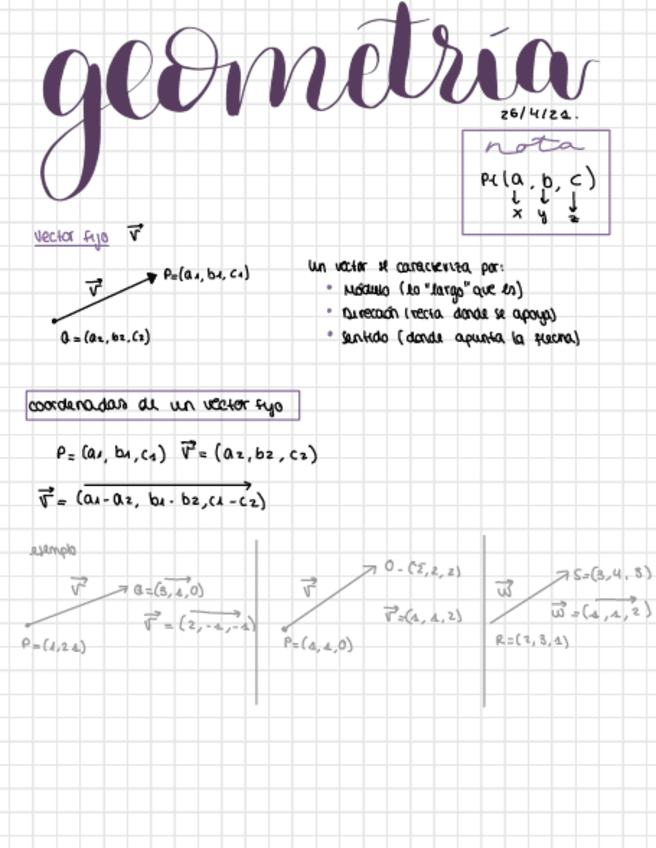 geometría
26/4/21.
nota
Pt(a, b, c)
x y z
vector fijo v
v P=(a1, b1, c1)
Q=(a2, b2, c2)
un vector se caracteriza por:
• Módulo (lo "largo" que es)
• Dirección (recta donde se apoya)
• Sentido (donde apunta la flecha)
coordenadas de un vector fijo
P= (a1, b1, c1) v= (a2, b2, c2)
v= (a1-a2, b1-b2, c1-c2)
ejemplo
v Q=(3,1,0)
v=(2,-1,-1)
P=(1,2 1)
v
v=(1,1,2)
P=(1,1,0)
w S=(3,4,3)
w=(1,1,2)
R=(2,3,1)